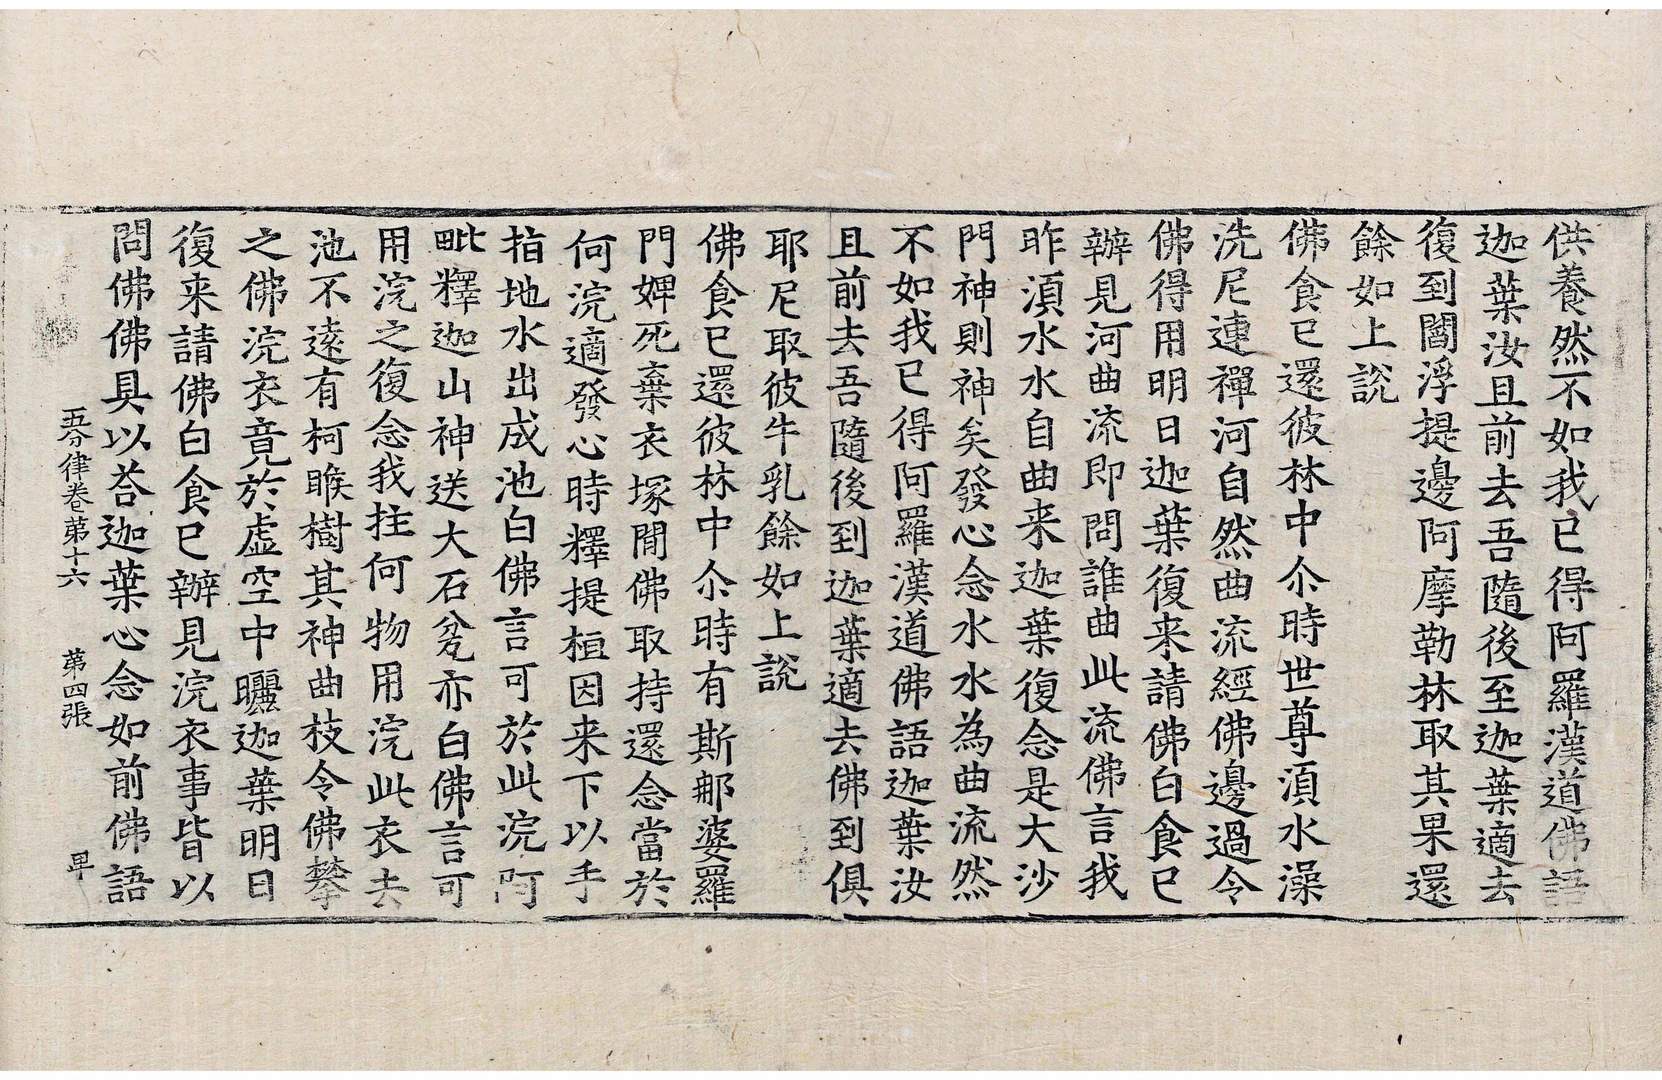 供養然不如我已得阿羅漢道佛語
迦葉汝且前去吾隨後至迦葉適去
復到閻浮提邊阿摩勒林取其果還
餘如上說
佛食已還彼林中尒時世尊湏水澡
洗尼連禪河自然曲流經佛邊過令
佛得用明日迦葉復来請佛白食已
辦見河曲流即問誰曲此流佛言我
昨湏水水自曲来迦葉復念是大沙
門神則神矣發心念水水為曲流然
不如我已得阿羅漢道佛語迦葉汝
且前去吾隨後到迦葉適去佛到俱
耶尼取彼牛乳餘如上說
佛食已還彼林中尒時有斯那婆羅
門婢死棄衣塚間佛取持還念當於
何浣適發心時釋提桓因来下以手
指地水出成池白佛言可於此浣阿
毗釋迦山神送大石㝹亦白佛言可
用浣之復念我拄何物用浣此衣去
池不遠有柯睺樹其神曲枝令佛攀
之佛浣衣竟於虛空中曬迦葉明日
復来請佛白食已辦見浣衣事皆以
問佛佛具以荅迦葉心念如前佛語
五分律卷第十六 第四張 早